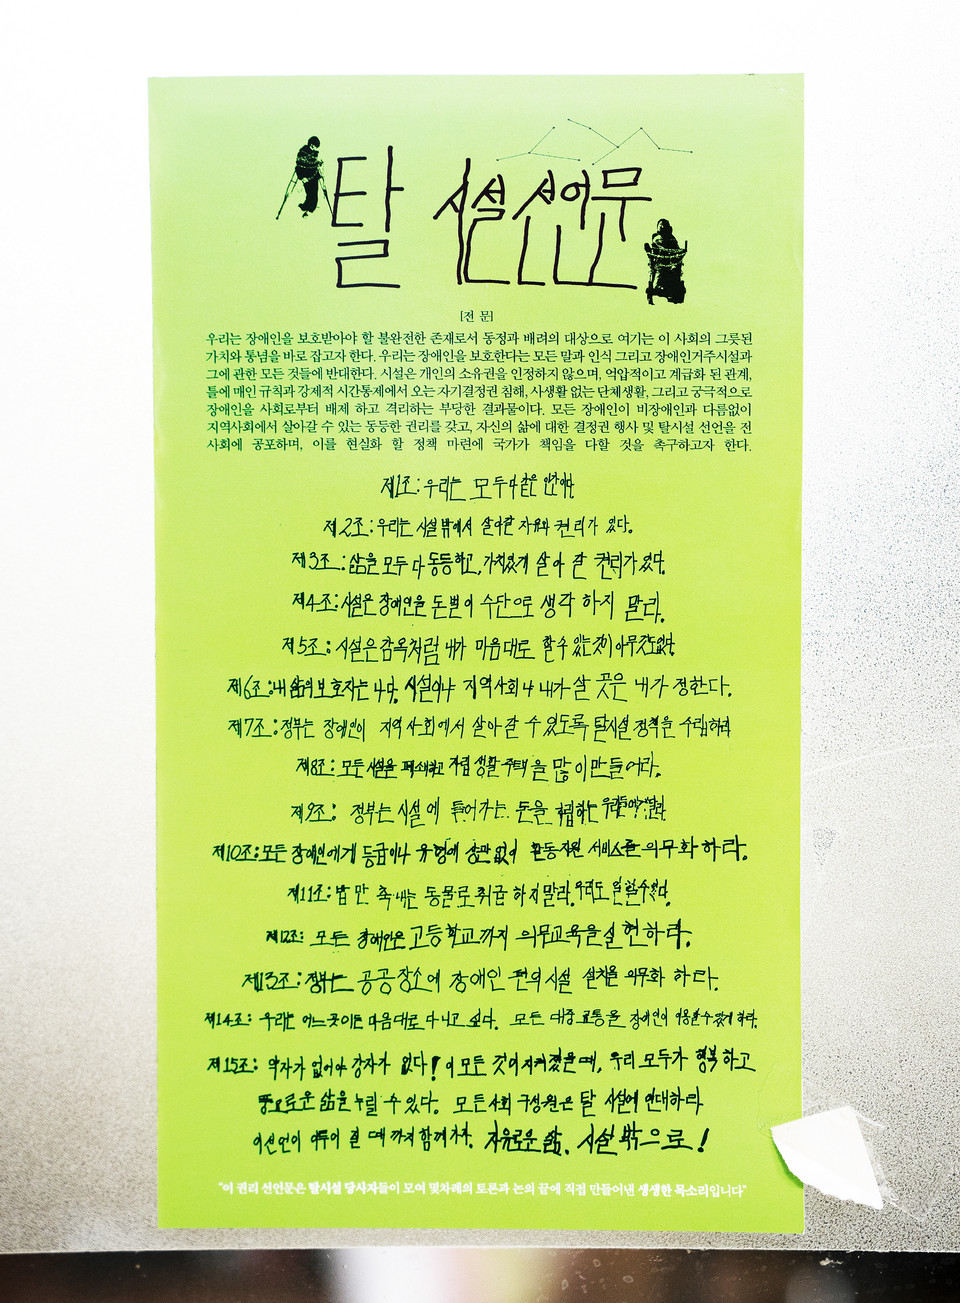 탈 시설 선언문
[전 문]
우리는 장애인을 보호받아야 할 불완전한 존재로서 동정과 배려의 대상으로 여기는 이 사회의 그릇된
가치와 통념을 바로 잡고자 한다. 우리는 장애인을 보호한다는 모든 말과 인식 그리고 장애인거주시설과
그에 관한 모든 것들에 반대한다. 시설은 개인의 소유권을 인정하지 않으며, 억압적이고 계급화 된 관계,
틀에 매인 규칙과 강제적 시간통제에서 오는 자기결정권 침해, 사생활 없는 단체생활, 그리고 궁극적으로
장애인을 사회로부터 배제 하고 격리하는 부당한 결과물이다. 모든 장애인이 비장애인과 다름없이
지역사회에서 살아갈 수 있는 동등한 권리를 갖고, 자신의 삶에 대한 결정권 행사 및 탈시설 선언을 전
사회에 공포하며, 이를 현실화 할 정책 마련에 국가가 책임을 다할 것을 촉구하고자 한다.
제1조: 우리는 모두 다 같은 인간이다
제2조: 우리는 시설 밖에서 살아갈 자유와 권리가 있다.
제3조: 삶을 모두 다 동등하고, 가치있게 살아 갈 권리가 있다.
제4조: 시설은 장애인을 돈벌이 수단으로 생각 하지 말라.
제5조: 시설은 감옥처럼 내가 마음대로 할 수 있는 것이 아무것도 없다
제6조: 내 삶의 보호자는 나다. 시설이나 지역사회나 내가 살 곳은 내가 정한다.
제7조: 정부는 장애인이 지역 사회에서 살아갈 수 있도록 탈시설 정책을 수립하라
제8조: 모든 시설을 폐쇄하고 자립 생활 주택을 많이 만들어라.
제9조: 정부는 시설에 들어가는 돈을
제10조: 모든 장애인에게 등급이나 유형에 상관 없이 활동지원 서비스를 의무화 하라.
제11조: 밥 만 축 내는 동물로 취급 하지말라. 우리도 일 할 수 있다.
제12조: 모든 장애인은 고등학교까지 의무교육을 실현하라.
제13조: 정부는 공공장소에 장애인 편의시설 설치를 의무화 하라.
제14조: 우리는 어느 곳이든 마음대로 다니고 싶다. 모든 대중교통을 장애인이 이용할 수 있게 하라.
제15조: 약자가 없어야 강자가 없다! 이 모든 것이 지켜졌을 때, 우리 모두가 행복하고
풍요로운 삶을 누릴 수 있다. 모든 사회 구성원은 탈 시설에 연대하라
이 선언이 이루어 질 때 까지 함께 하자. 자유로운 삶, 시설 밖으로!
"이 권리 선언문은 탈시설 당사자들이 모여 몇차례의 토론과 논의 끝에 직접 만들어낸 생생한 목소리입니다"